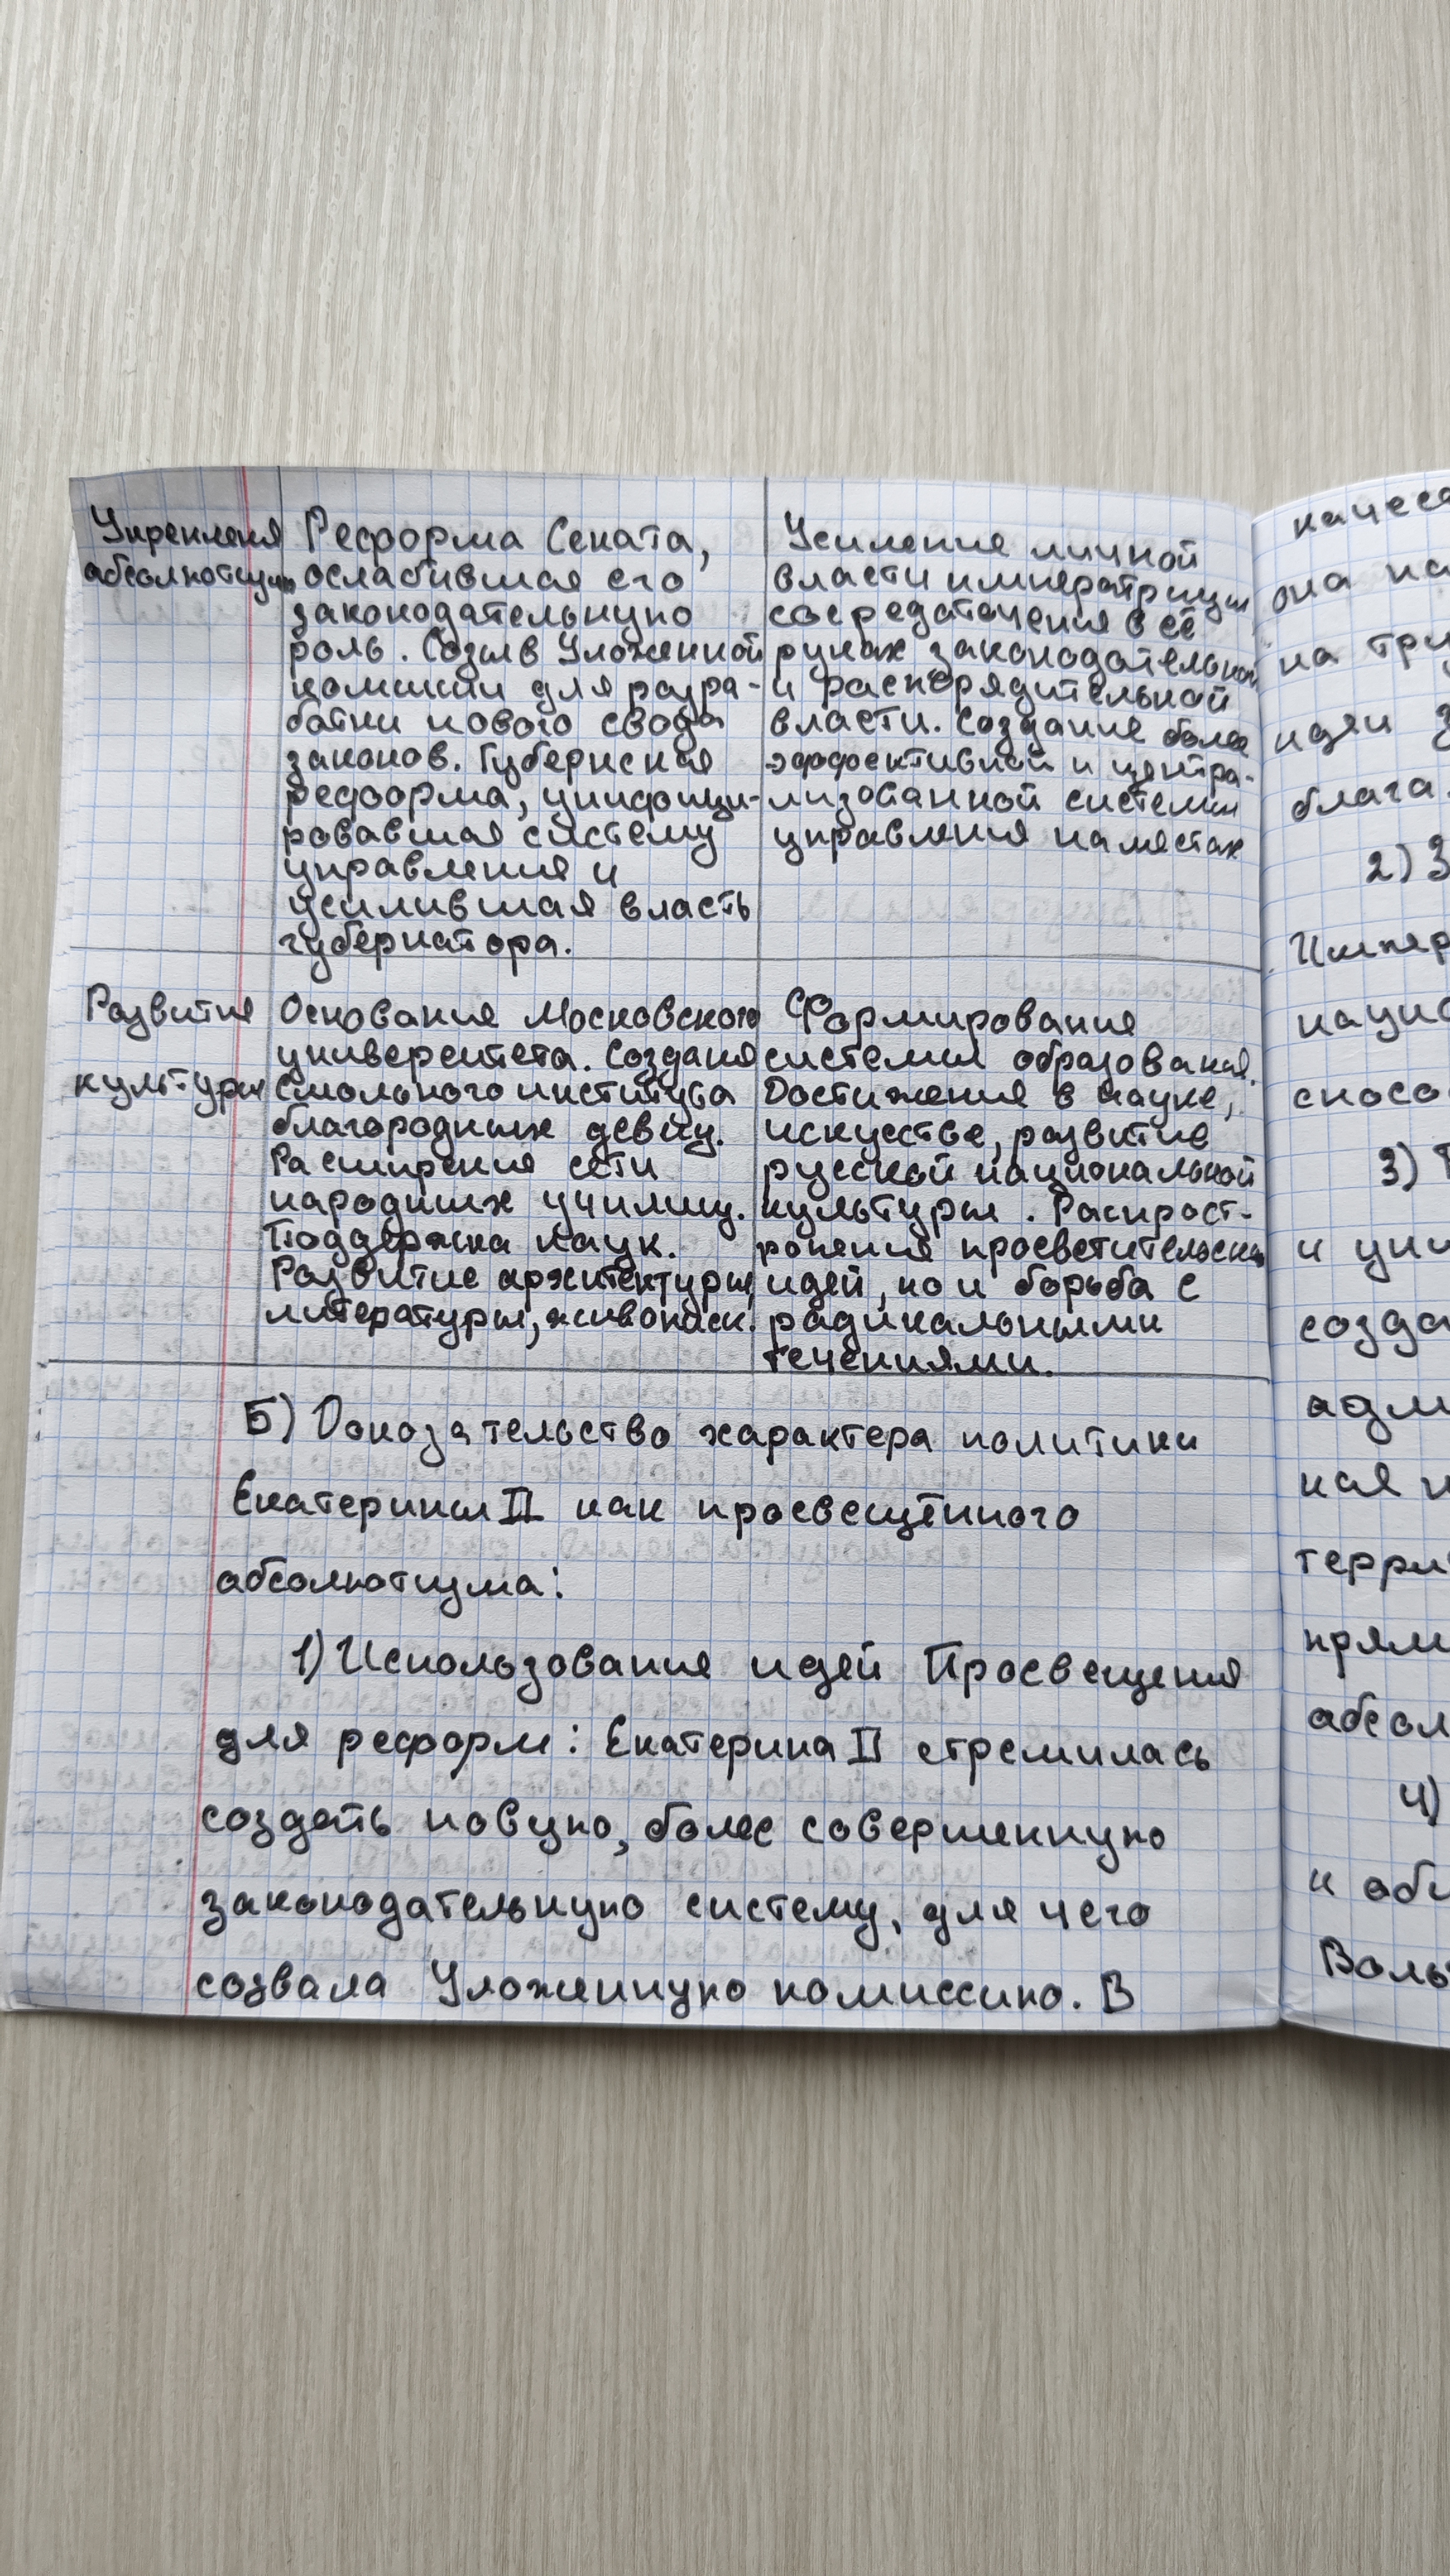 Укрепления
абсолютизма
Реформа Сената,
ослабившая его
законодательную
роль. Созыв Уложенной
комиссии для разра-
ботки нового свода
законов. Губернская
реформа, унифици-
ровавшая систему
управления и
усилившая власть
губернатора.
Усиление личной
власти императрицы
сосредоточения в её
руках законодательной
и распорядительной
власти. Создание более
эффективной и центра-
лизованной системы
управления на местах
Развития
культуры
Основания Московского
университета. Создания
Смольного института
благородных девиц.
Расширения сети
народных училищ.
Поддержка наук.
Развитие архитектуры,
литературы, живописи.
Формирования
системы образования.
Достижения в науке,
искусстве, развитие
русской национальной
культуры. Распрост-
ронения просветительских
идей, но и борьба с
радикальными
течениями.
Б) Доказательство характера политики
Екатерины II как просвещённого
абсолютизма:
1) Использования идей Просвещения
для реформ: Екатерина II стремилась
создать новую, более совершенную
законодательную систему, для чего
созвала Уложенную комиссию. В
она
на
идеи
блага.
2)
3)
и
4)
к